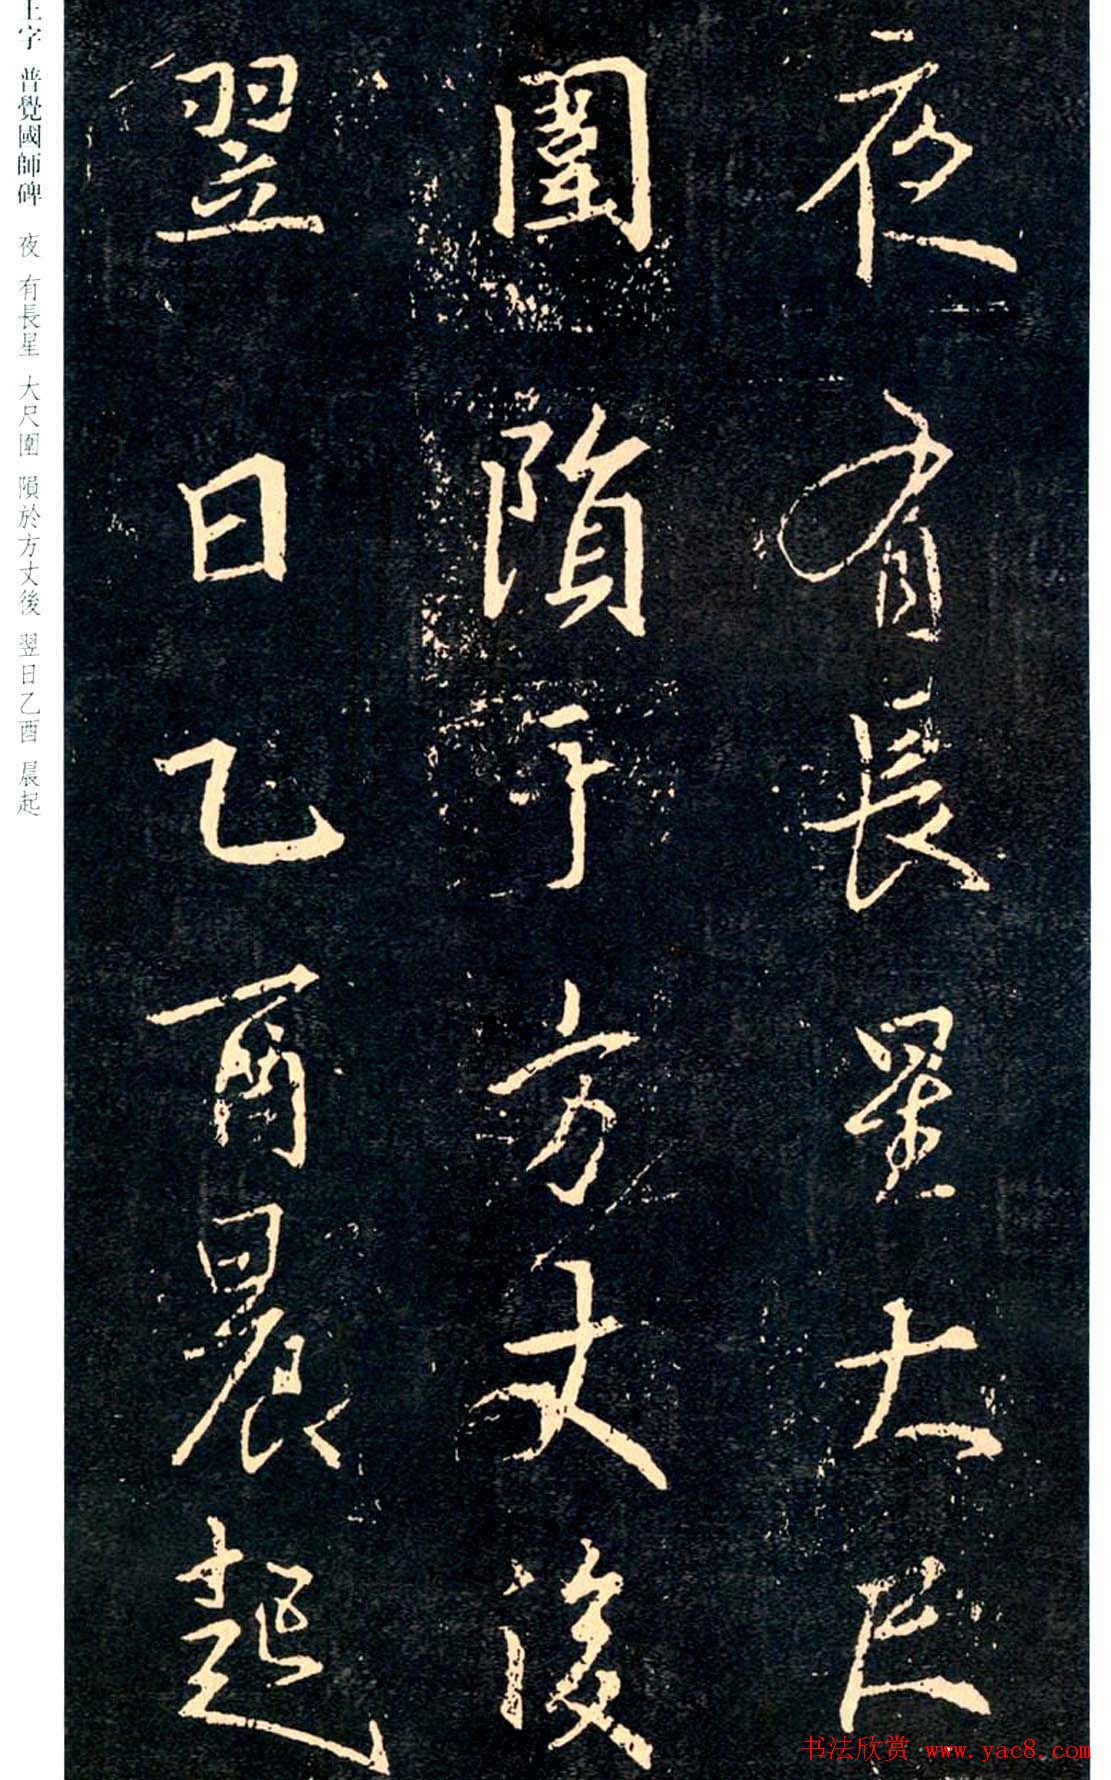 夜有長星大尺
圍隕于方丈後
翌日乙酉晨起
字 普覺國師碑 夜 有長星 大尺圍 隕於方丈後 翌日乙酉 晨起
书法欣赏 www.yac8.com